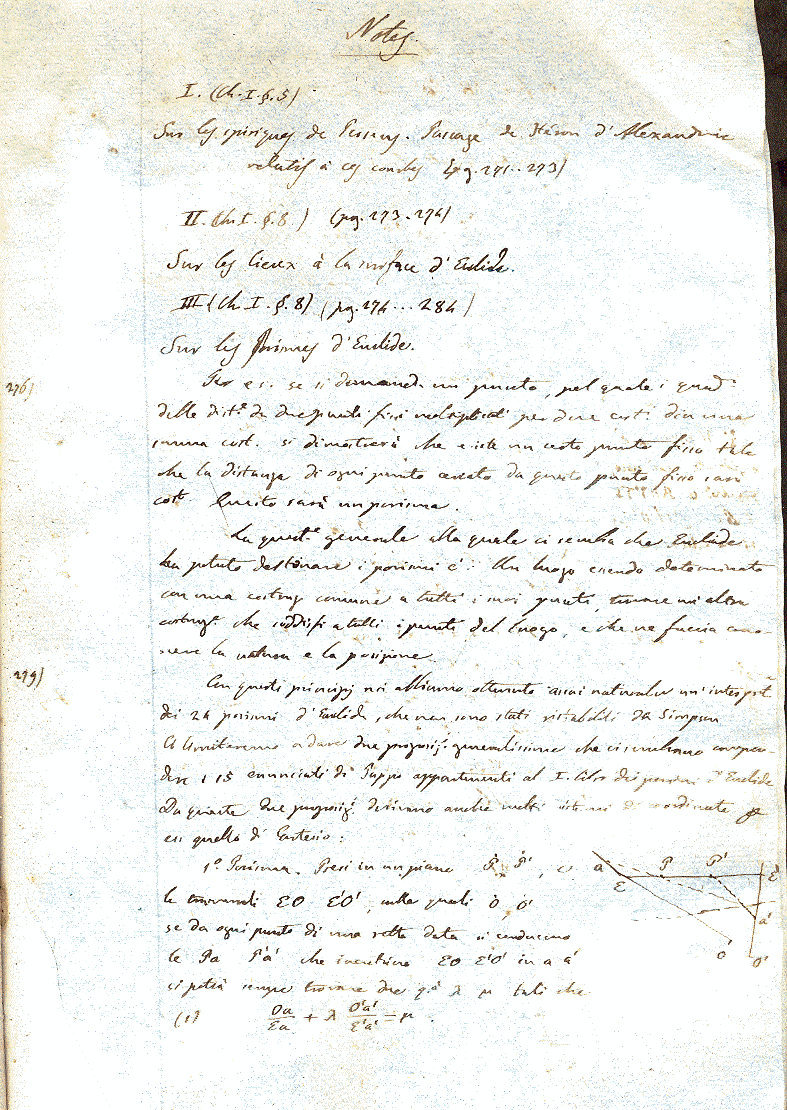 Notes.
I. (Ch. I. §. 5)
Sur les spiriques de Perseus. Passage de Héron d'Alexandrie
relatif à ces courbes (pg. 271..273)
II. (Ch. I. §. 8) (pg. 273-274)
Sur les lieux à la surface d'Euclide.
III (Ch. I. §. 8) (pg. 274...284)
Sur les Porismes d'Euclide.
276)
Per es. se si domanda un punto, pel quale i quad.ⁱ
delle dist.ᵉ da due punti fissi moltiplicati per due cost.ⁱ dia una
somma cost. si dimostrerà che esiste un certo punto fisso tale
che la distanza di ogni punto cercato da questo punto fisso sarà
costᵉ. Questo sarà un porisma.
La quest.ᵉ generale alla quale ci sembra che Euclide
ha potuto destinare i porismi è: Un luogo essendo determinato
con una costruzᵉ comune a tutti i suoi punti, trovare un'altra
costruzᵉ che soddisfi a tutti i punti del luogo, e che ne faccia cono-
scere la natura e la posizione.
279)
Con questi principj noi abbiamo ottenuto assai naturalᵉ un'interpretᵉ
dei 24 porismi d'Euclide, che non sono stati ristabiliti da Simpson
Ci limiteremo a dare due proposizⁱ. generalissime che ci sembrano compren-
dere i 15 enunciati di Pappo appartenenti al I. libro dei porismi d'Euclide
Da queste due proposizⁱ. derivano anche molti sistemi di coordinate p
es quello di Cartesio:
1º Porisma. Presi in un piano P P', e
le trasversali EO E'O', sulle quali O O'
se da ogni punto di una retta data si conducono
le Pa P'a' che incontrino EO E'O' in a a'
si potrà sempre trovare due q.ᵃ λ μ tali che
(1) Oa/Ea + λ O'a'/E'a' = μ.
a E P P' E' a' O O'